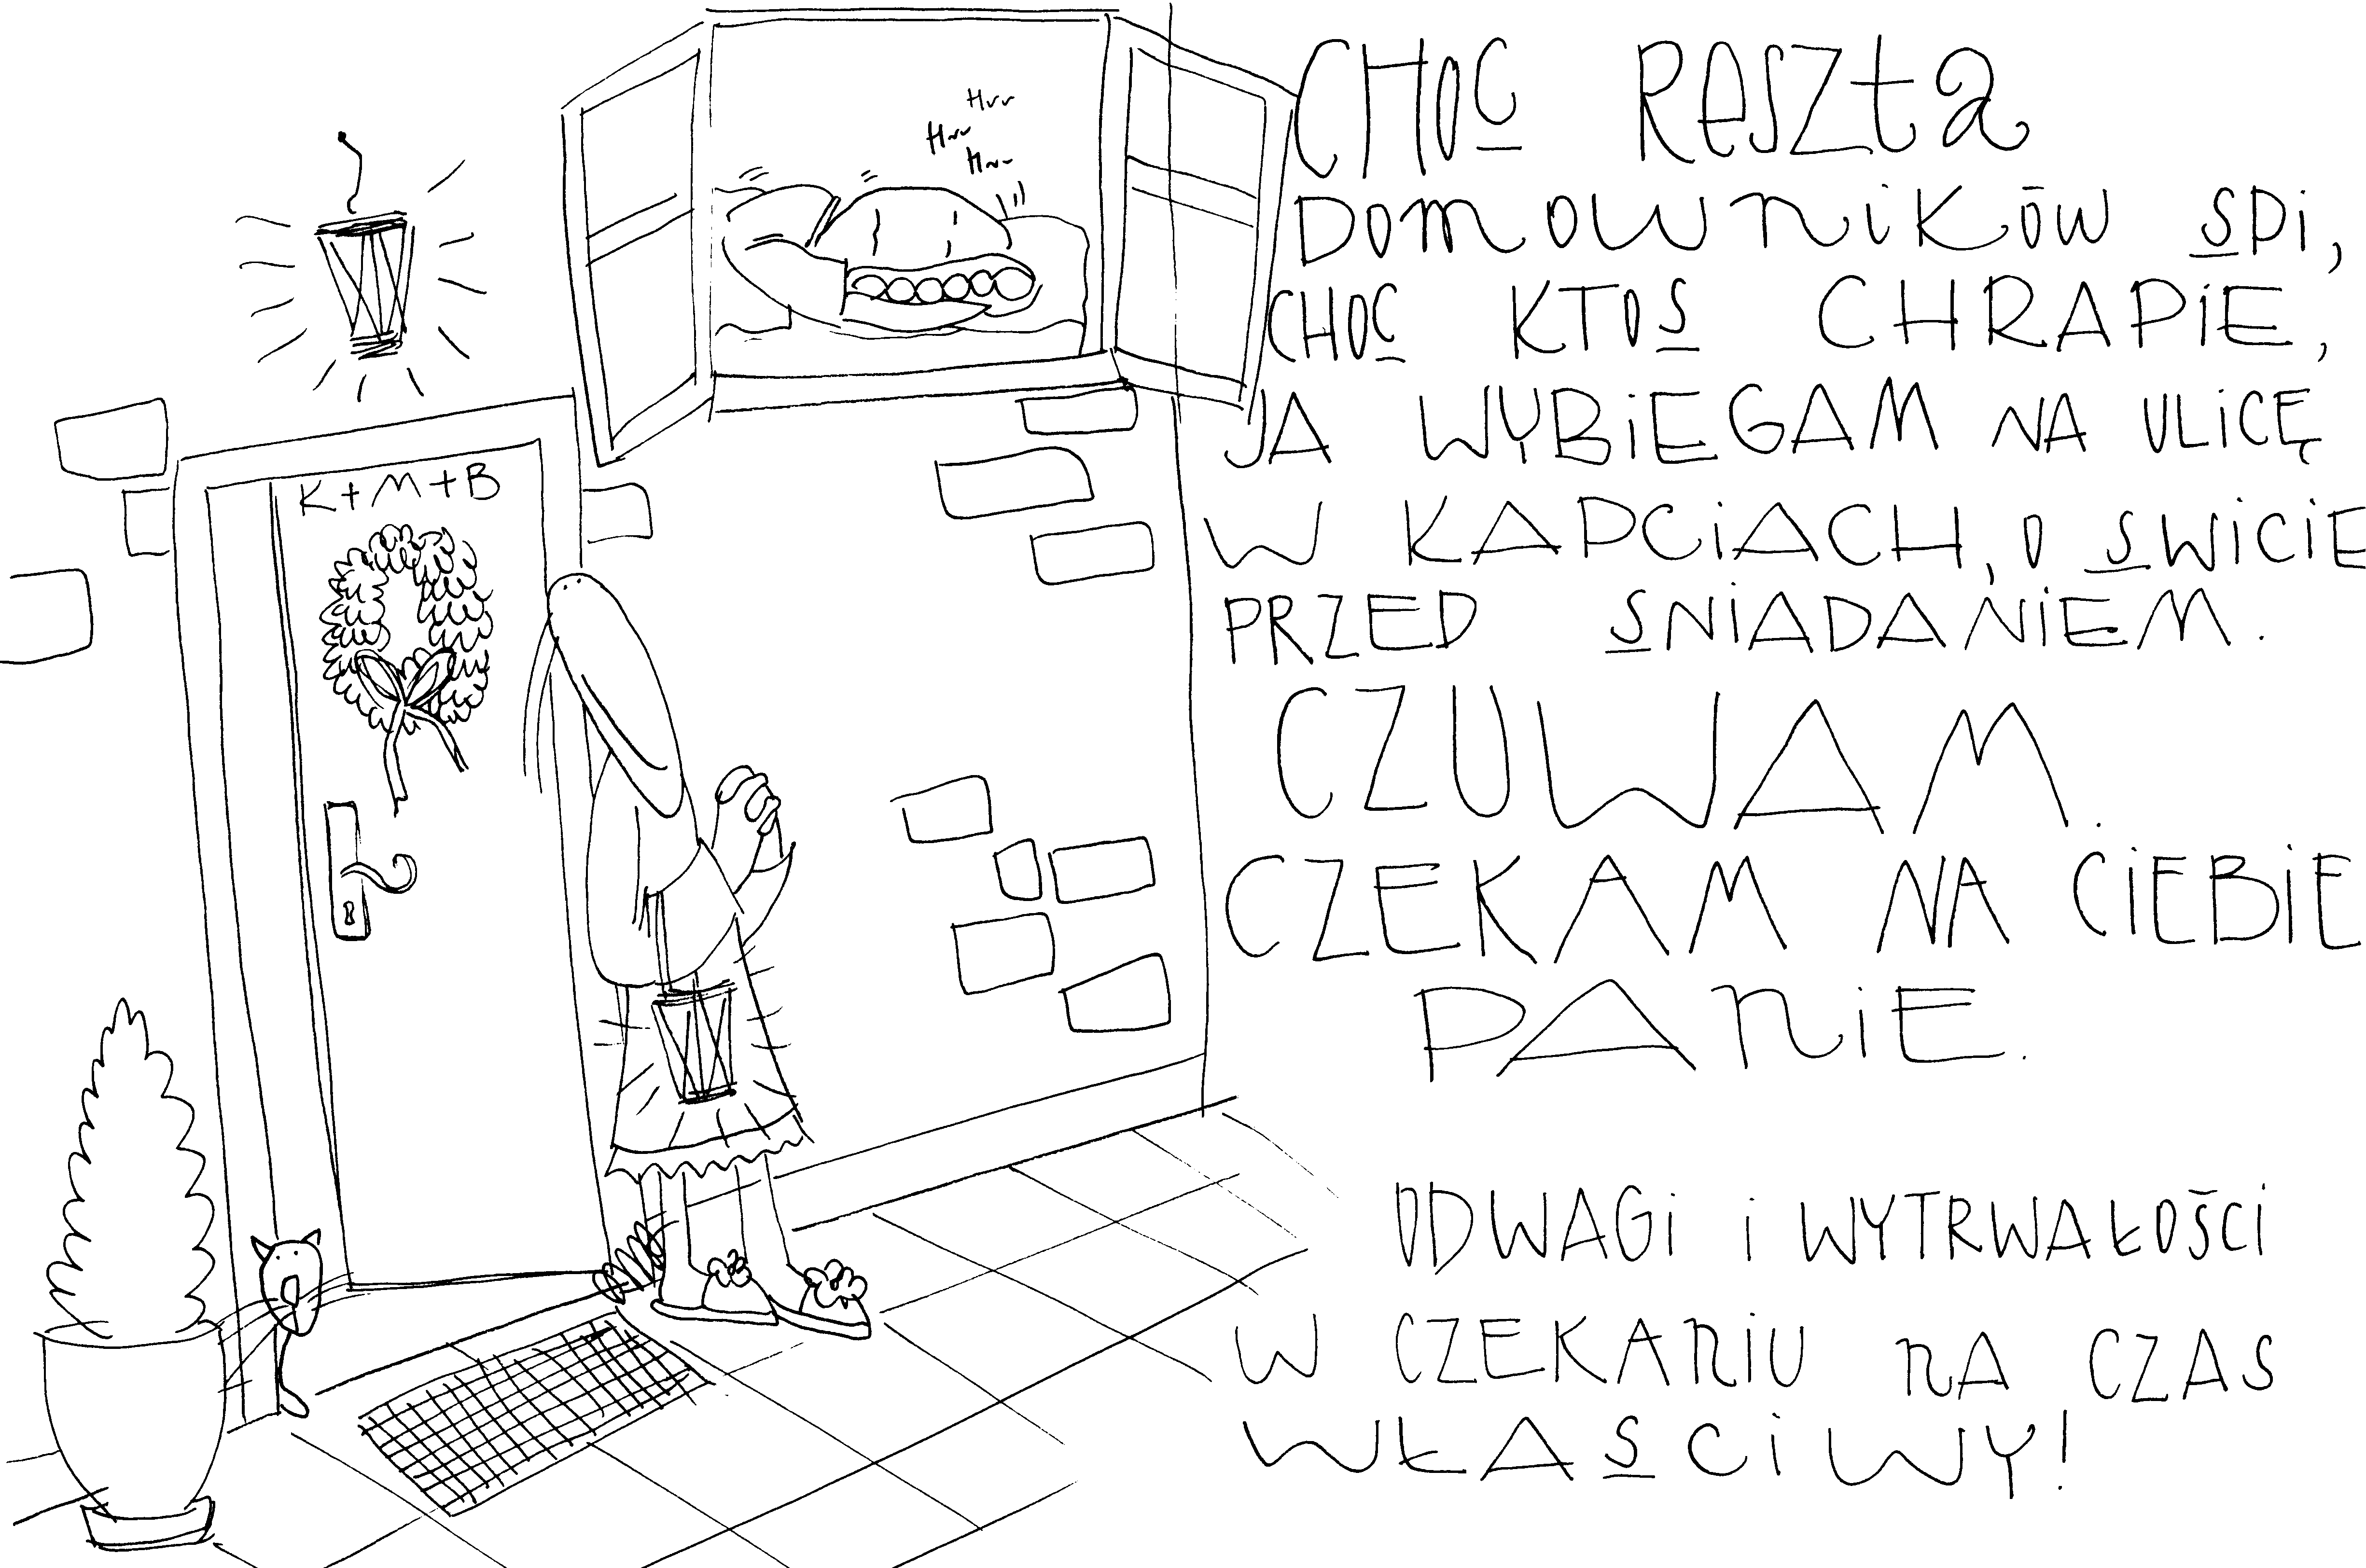 Hrr
Hrr
Hrr
K+M+B
CHOĆ RESZTA
DOMOWNIKÓW ŚPI,
CHOĆ KTOŚ CHRAPIE,
JA WYBIEGAM NA ULICĘ
W KAPCIACH, O ŚWICIE
PRZED ŚNIADANIEM.
CZUWAM.
CZEKAM NA CIEBIE
PANIE.
ODWAGI i WYTRWAŁOŚCI
W CZEKANIU NA CZAS
WŁAŚCIWY!